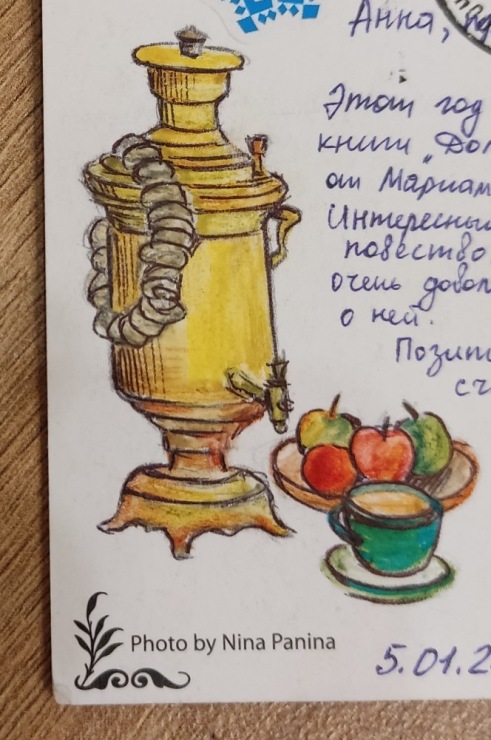 Анна,
Этот год
книги „Дол
от Мариам
Интересный
повество
очень довол
о ней.
Позити
сч
Photo by Nina Panina
5.01.2